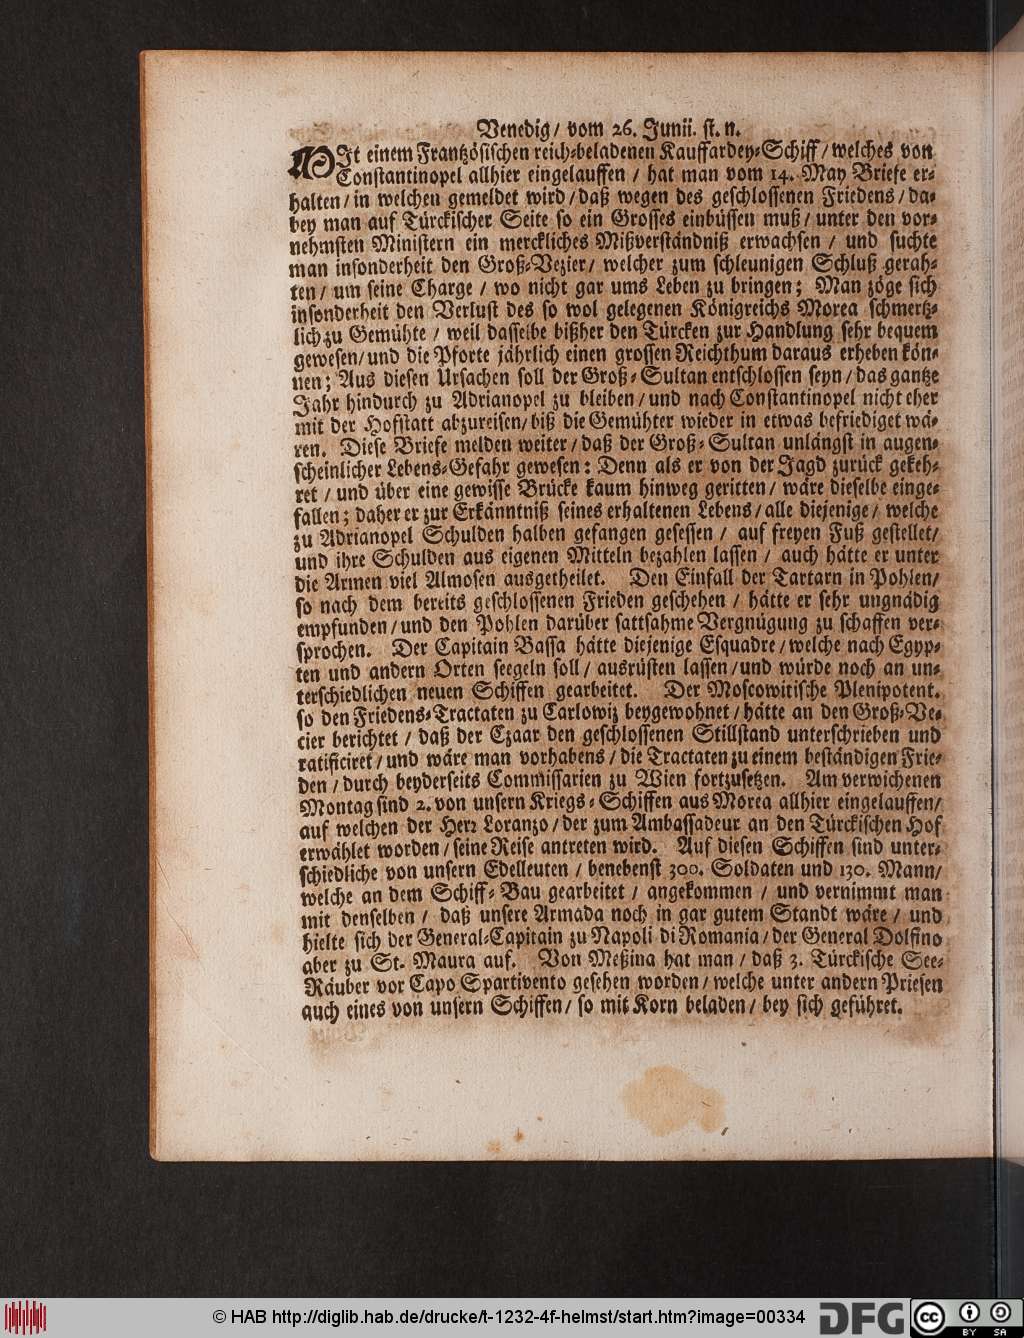 Venedig/ vom 26. Junii. st. n.
MIt einem Frantzösischen reich-beladenen Kauffardey-Schiff/ welches von
Constantinopel allhier eingelauffen / hat man vom 14. May Briefe er-
halten/ in welchen gemeldet wird/ daß wegen des geschlossenen Friedens/ da-
bey man auf Türckischer Seite so ein Grosses einbüssen muß/ unter den vor-
nehmsten Ministern ein merckliches Mißverständniß erwachsen / und suchte
man insonderheit den Groß-Vezier/ welcher zum schleunigen Schluß gerah-
ten/ um seine Charge / wo nicht gar ums Leben zu bringen; Man zöge sich
insonderheit den Verlust des so wol gelegenen Königreichs Morea schmertz-
lich zu Gemühte / weil dasselbe bißher den Türcken zur Handlung sehr bequem
gewesen/ und die Pforte jährlich einen grossen Reichthum daraus erheben kön-
nen; Aus diesen Ursachen soll der Groß-Sultan entschlossen seyn/ das gantze
Jahr hindurch zu Adrianopel zu bleiben/ und nach Constantinopel nicht eher
mit der Hofstatt abzureisen/ biß die Gemühter wieder in etwas befriediget wä-
ren. Diese Briefe melden weiter/ daß der Groß-Sultan unlängst in augen-
scheinlicher Lebens-Gefahr gewesen: Denn als er von der Jagd zurück gekeh-
ret / und über eine gewisse Brücke kaum hinweg geritten/ wäre dieselbe einge-
fallen; daher er zur Erkänntniß seines erhaltenen Lebens/ alle diejenige/ welche
zu Adrianopel Schulden halben gefangen gesessen / auf freyen Fuß gestellet/
und ihre Schulden aus eigenen Mitteln bezahlen lassen / auch hätte er unter
die Armen viel Almosen ausgetheilet. Den Einfall der Tartarn in Pohlen/
so nach dem bereits geschlossenen Frieden geschehen / hätte er sehr ungnädig
empfunden/ und den Pohlen darüber sattsahme Vergnügung zu schaffen ver-
sprochen. Der Capitain Bassa hätte diejenige Esquadre/ welche nach Egyp-
ten und andern Orten seegeln soll/ ausrüsten lassen/ und würde noch an un-
terschiedlichen neuen Schiffen gearbeitet. Der Moscowitische Plenipotent.
so den Friedens-Tractaten zu Carlowiz beygewohnet/ hätte an den Groß-Ve-
cier berichtet / daß der Czaar den geschlossenen Stillstand unterschrieben und
ratificiret/ und wäre man vorhabens/ die Tractaten zu einem beständigen Frie-
den/ durch beyderseits Commissarien zu Wien fortzusetzen. Am verwichenen
Montag sind 2. von unsern Kriegs-Schiffen aus Morea allhier eingelauffen/
auf welchen der Herr Loranzo/ der zum Ambassadeur an den Türckischen Hof
erwählet worden/ seine Reise antreten wird. Auf diesen Schiffen sind unter-
schiedliche von unsern Edelleuten/ benebenst 300. Soldaten und 130. Mann/
welche an dem Schiff-Bau gearbeitet / angekommen / und vernimmt man
mit denselben / daß unsere Armada noch in gar gutem Standt wäre / und
hielte sich der General-Capitain zu Napoli di Romania/ der General Dolfino
aber zu St. Maura auf. Von Meßina hat man/ daß 3. Türckische See-
Räuber vor Capo Spartivento gesehen worden/ welche unter andern Priesen
auch eines von unsern Schiffen/ so mit Korn beladen/ bey sich geführet.
© HAB http://diglib.hab.de/drucke/t-1232-4f-helmst/start.htm?image=00334
DFG
cc
BY SA